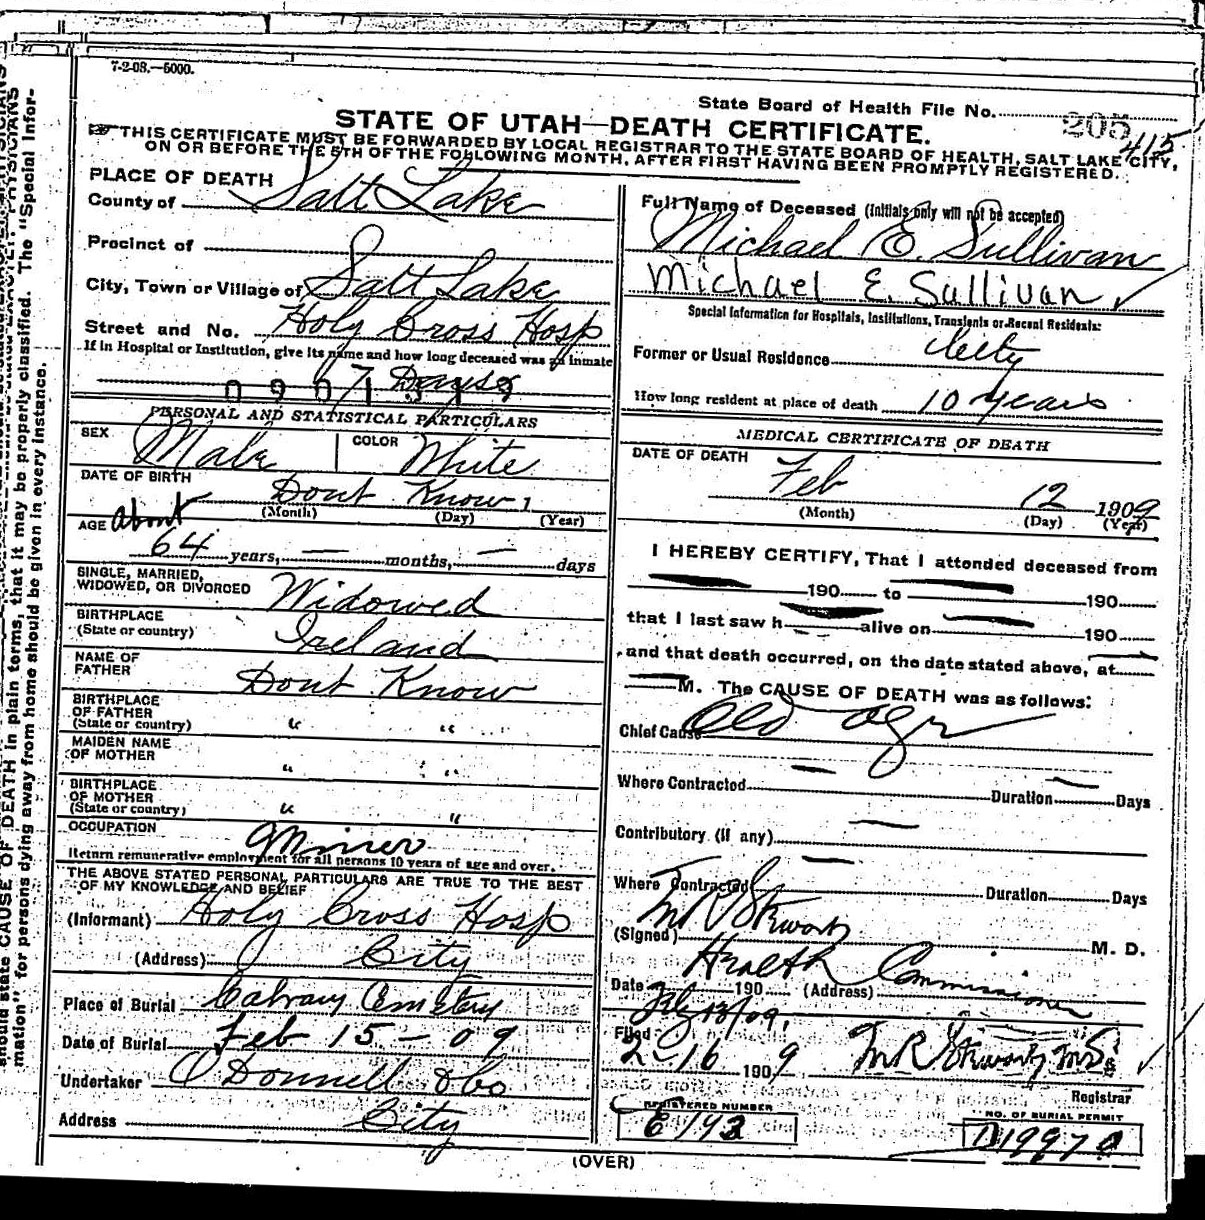 7-2-08.—5000.
State Board of Health File No. 205
415
STATE OF UTAH—DEATH CERTIFICATE.
THIS CERTIFICATE MUST BE FORWARDED BY LOCAL REGISTRAR TO THE STATE BOARD OF HEALTH, SALT LAKE CITY,
ON OR BEFORE THE 5TH OF THE FOLLOWING MONTH, AFTER FIRST HAVING BEEN PROMPTLY REGISTERED.
PLACE OF DEATH
County of Salt Lake
Precinct of
City, Town or Village of Salt Lake
Street and No. Holy Cross Hosp
If in Hospital or Institution, give its name and how long deceased was an inmate
7 Days
PERSONAL AND STATISTICAL PARTICULARS
SEX Male COLOR White
DATE OF BIRTH Dont Know 1
(Month) (Day) (Year)
AGE about
64 years, — months, — days
SINGLE, MARRIED,
WIDOWED, OR DIVORCED Widowed
BIRTHPLACE
(State or country) Ireland
NAME OF
FATHER Dont Know
BIRTHPLACE
OF FATHER
(State or country) " "
MAIDEN NAME
OF MOTHER " "
BIRTHPLACE
OF MOTHER
(State or country) " "
OCCUPATION Miner
Return remunerative employment for all persons 10 years of age and over.
THE ABOVE STATED PERSONAL PARTICULARS ARE TRUE TO THE BEST
OF MY KNOWLEDGE AND BELIEF
(Informant) Holy Cross Hosp
(Address) City
Place of Burial Calvary Cemetery
Date of Burial Feb 15 - 09
Undertaker O'Donnell & Co
Address City
Full Name of Deceased (Initials only will not be accepted)
Michael E. Sullivan
Michael E. Sullivan ✓
Special Information for Hospitals, Institutions, Transients or Recent Residents:
Former or Usual Residence City
How long resident at place of death 10 years
MEDICAL CERTIFICATE OF DEATH
DATE OF DEATH
Feb 12 1909
(Month) (Day) (Year)
I HEREBY CERTIFY, That I attended deceased from
190 to 190
that I last saw h alive on 190
and that death occurred, on the date stated above, at
M. The CAUSE OF DEATH was as follows:
Chief Cause Old age
Where Contracted — Duration — Days
Contributory (if any) —
Where Contracted — Duration Days
(Signed) M. D.
Health Commissioner
Date 190 (Address)
Filed
2-16 1909
Registrar
REGISTERED NUMBER
E193
NO. OF BURIAL PERMIT
(OVER)
should state CAUSE OF DEATH in plain terms, that it may be properly classified. The "Special Infor-
mation" for persons dying away from home should be given in every instance.